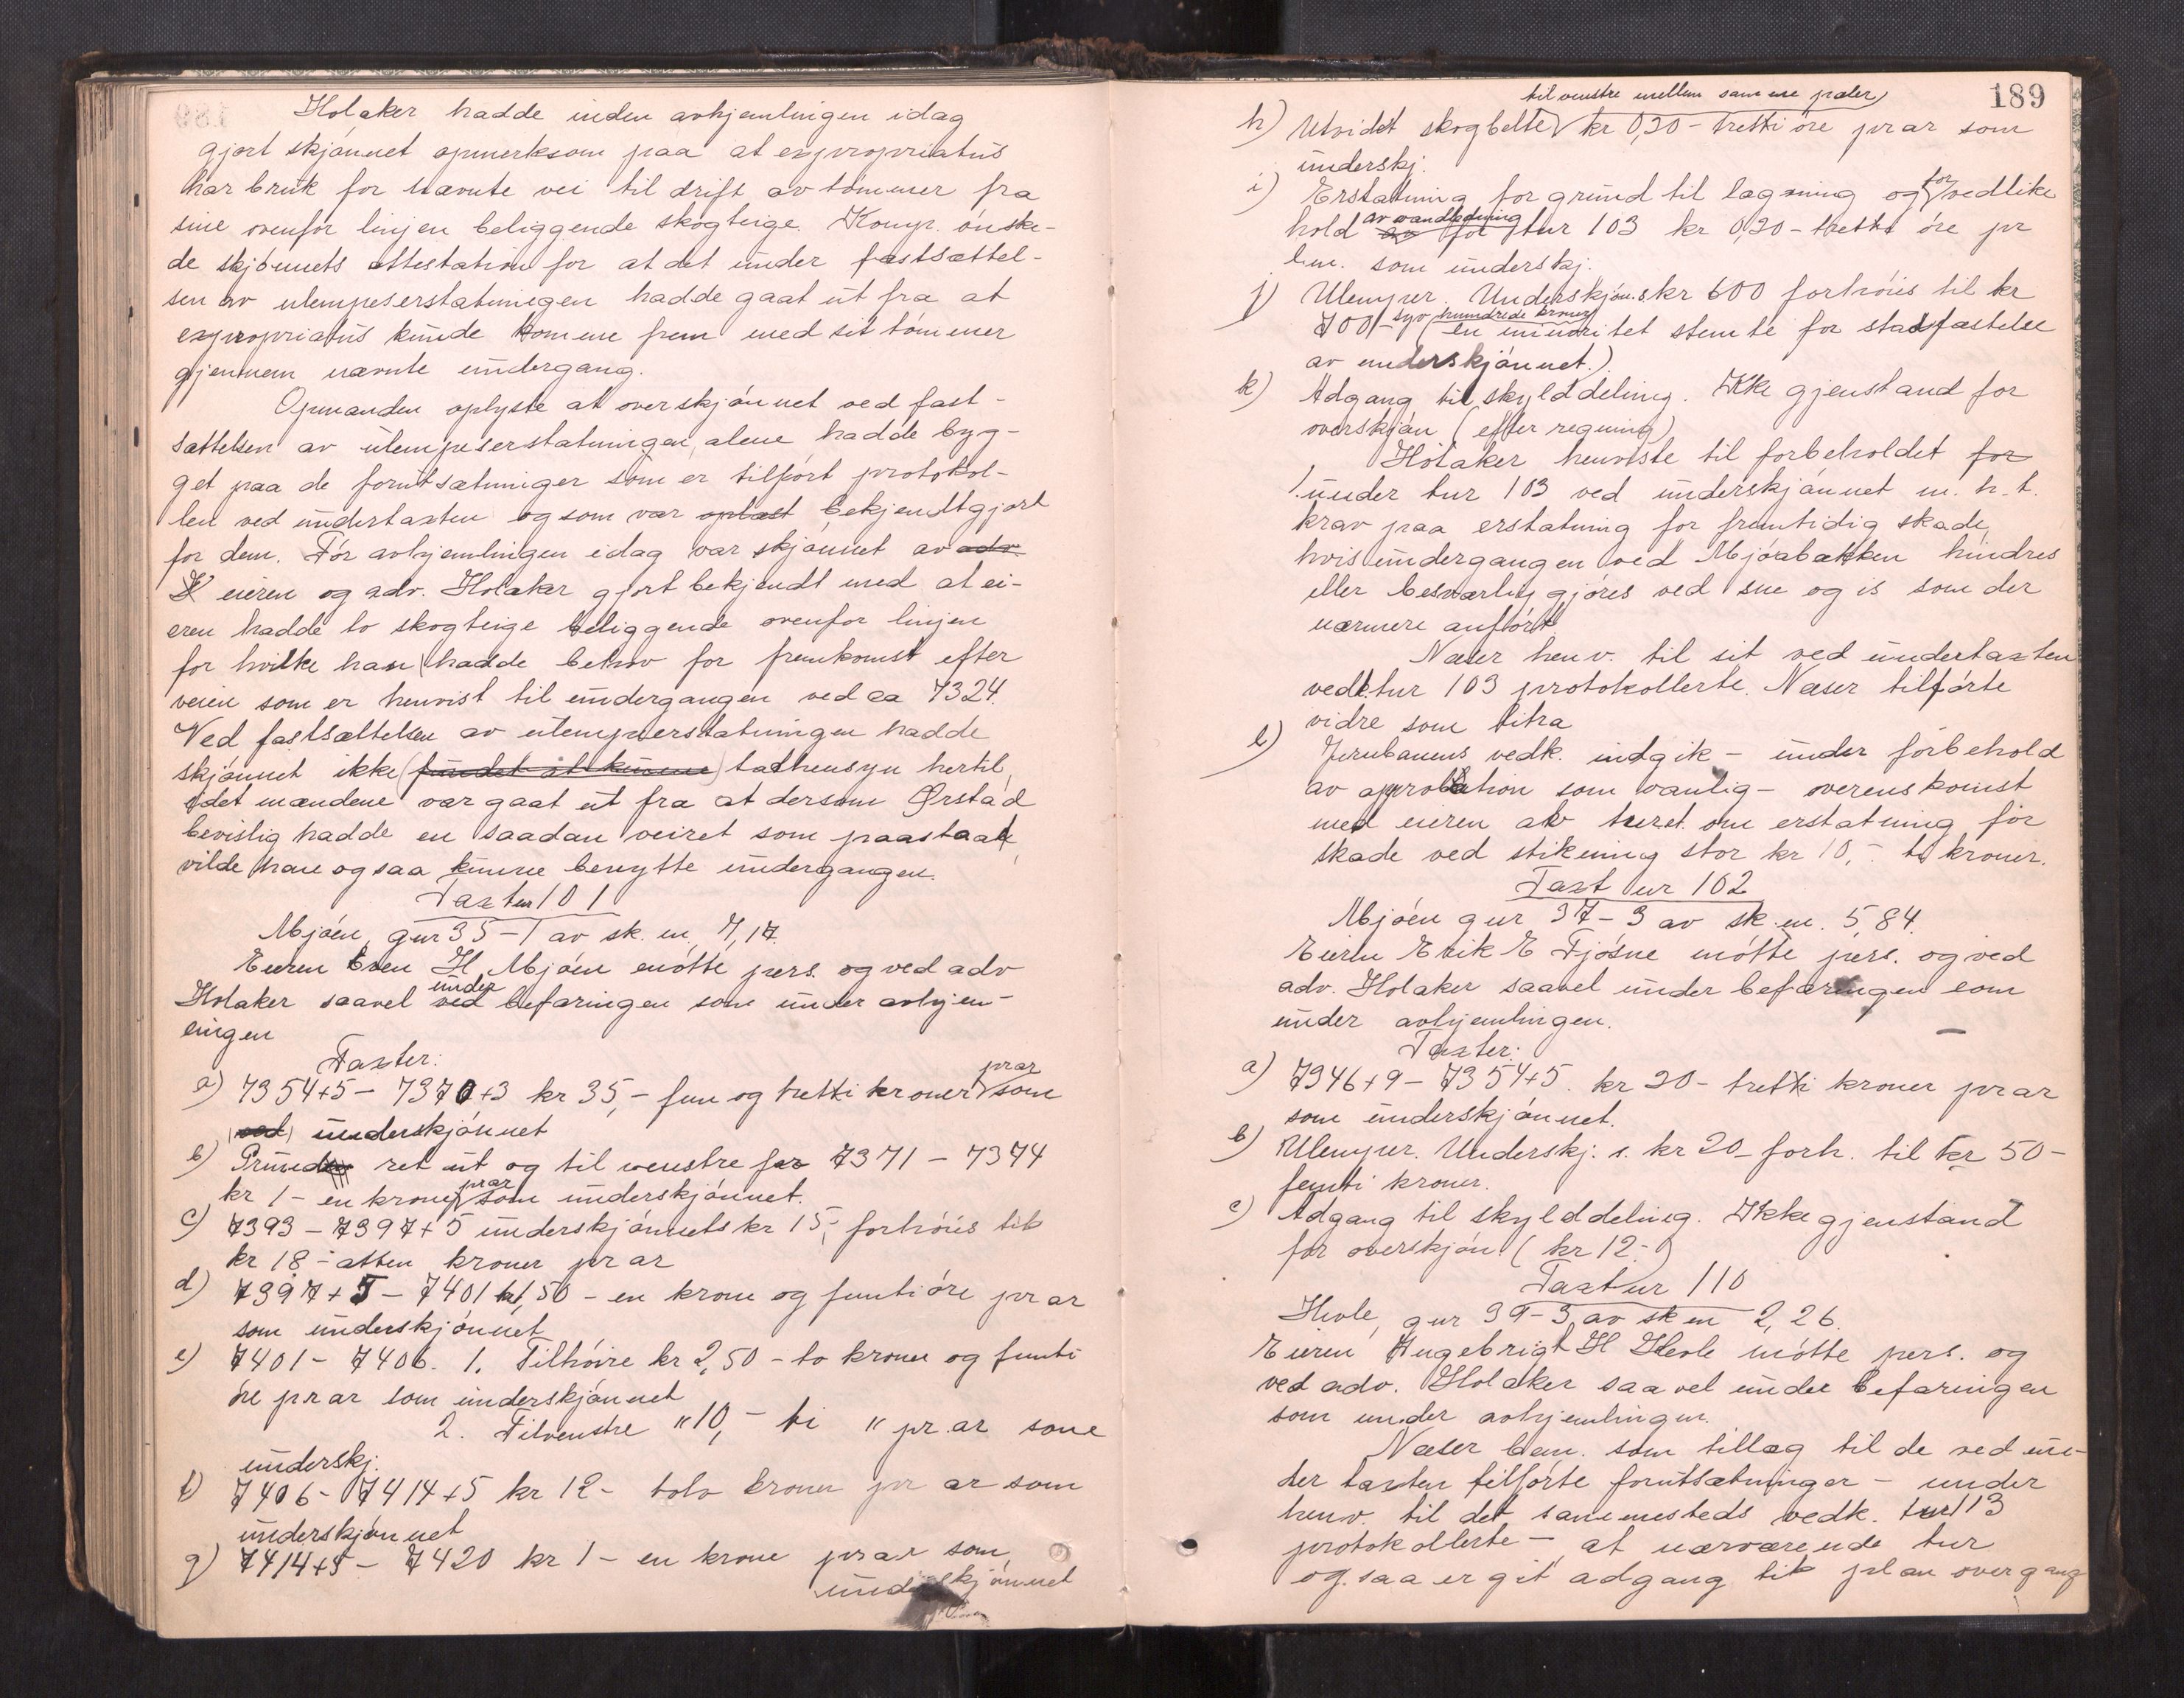 Holaker hadde inden avhjemlingen idag
gjort skjønnet opmerksom paa at expropriatus
har bruk for nævnte vei til drift av tømmer fra
sine ovenfor linjen beliggende skogteige. Komp. ønske-
de skjønnets attestation for at det under fastsættel-
sen av ulempeserstatningen hadde gaat ut fra at
expropriatus kunde komme frem med sit tømmer
gjennem nævnte undergang.
Opmanden oplyste at overskjønnet ved fast-
sættelsen av ulempeserstatningen alene hadde byg-
get paa de forutsætninger som er tilført protokol-
len ved undertaxten og som var oplæst bekjendtgjort
for dem. Før avhjemlingen idag var skjønnet av adv.
H eieren og adv. Holaker gjort bekjendt med at ei-
eren hadde to skogteige beliggende ovenfor linjen
for hvilke han hadde behov for fremkomst efter
veien som er henvist til undergangen ved ca 7324.
Ved fastsættelsen av ulempeerstatningen hadde
skjønnet ikke (fundet at kunne) tat hensyn hertil,
idet mændene var gaat ut fra at dersom Ørstad
bevislig hadde en saadan veiret som paastaat,
vilde han ogsaa kunne benytte undergangen.
Taxt nr 101
Mjøen, gnr 35-1 av sk. m. 7,17.
Eieren Even H. Mjøen møtte pers. og ved adv
Holaker saavel ved under befaringen som under avhjem-
lingen
Taxter:
a) 7354+5 - 7370+3 kr 35,- fem og tretti kroner pr ar som
(ved) underskjønnet
b) Grunden ret ut og til venstre for 7371 - 7374
kr 1 - en krone pr ar som underskjønnet.
c) 7393 - 7397+5 underskjønnets kr 15,- forhøies til
kr 18 - atten kroner pr ar
d) 7397+5 - 7401 kr 1,50 - en krone og femti øre pr ar
som underskjønnet
e) 7401 - 7406. 1. Tilhøire kr 2,50 - to kroner og femti
øre pr ar som underskjønnet
2. Tilvenstre " 10,- ti " pr. ar som
underskj.
f) 7406 - 7414+5 kr 12 - tolv kroner pr ar som
underskjønnet
g) 7414+5 - 7420 kr 1 - en krone pr ar som
underskjønnet
189
til venstre mellem samme pæler
h) Utvidet skogbelte kr 0,30 - tretti øre pr ar som
underskj.
i) Erstatning for grund til lægning og for vedlike
hold av av vandledning for tnr 103 kr 0,30 - tretti øre pr
l.m. som underskj.
j) Ulemper. Underskjøn.s kr 600 forhøies til kr
700 - syv hundrede kroner (en minoritet stemte for stadfæstelse
av underskjønnet.)
k) Adgang til skylddeling. Ikke gjenstand for
overskjøn (efter regning)
Holaker henviste til forbeholdet for
under tnr 103 ved underskjønnet m. h. t.
krav paa erstatning for fremtidig skade,
hvis undergangen ved Mjøabækken hindres
eller besværliggjøres ved sne og is som der
nærmere anført.
Næser henv. til sit ved undertaxten
vedk. tnr 103 protokollerte. Næser tilførte
vidre som litra
l) Jernbanens vedk. indgik - under forbehold
av approbation som vanlig - overenskomst
med eieren av tnret om erstatning for
skade ved stikning stor kr 10,- ti kroner.
Taxt nr 102
Mjøen gnr 37-3 av sk. m. 5,84.
Eieren Erik E Fjøsne møtte pers. og ved
adv. Holaker saavel under befaringen som
under avhjemlingen.
Taxter:
a) 7346+9 - 7354+5. kr 30 - tretti kroner pr ar
som underskjønnet.
b) Ulemper. Underskj. s. kr 20 - forh. til kr 50 -
femti kroner.
c) Adgang til skylddeling. Ikke gjenstand
for overskjøn. (kr 12.-)
Taxt nr 110
Hevle, gnr 39-3, av sk m 2,26.
Eieren Ingebrigt H Hevle møtte pers. og
ved adv. Holaker saavel under befaringen
som under avhjemlingen.
Næser bem. som tillæg til de ved un-
dertaxten tilførte forutsætninger - under
henv. til det sammesteds vedk. tnr 113
protokollerte - at nærværende tnr
ogsaa er git adgang til plan overgang